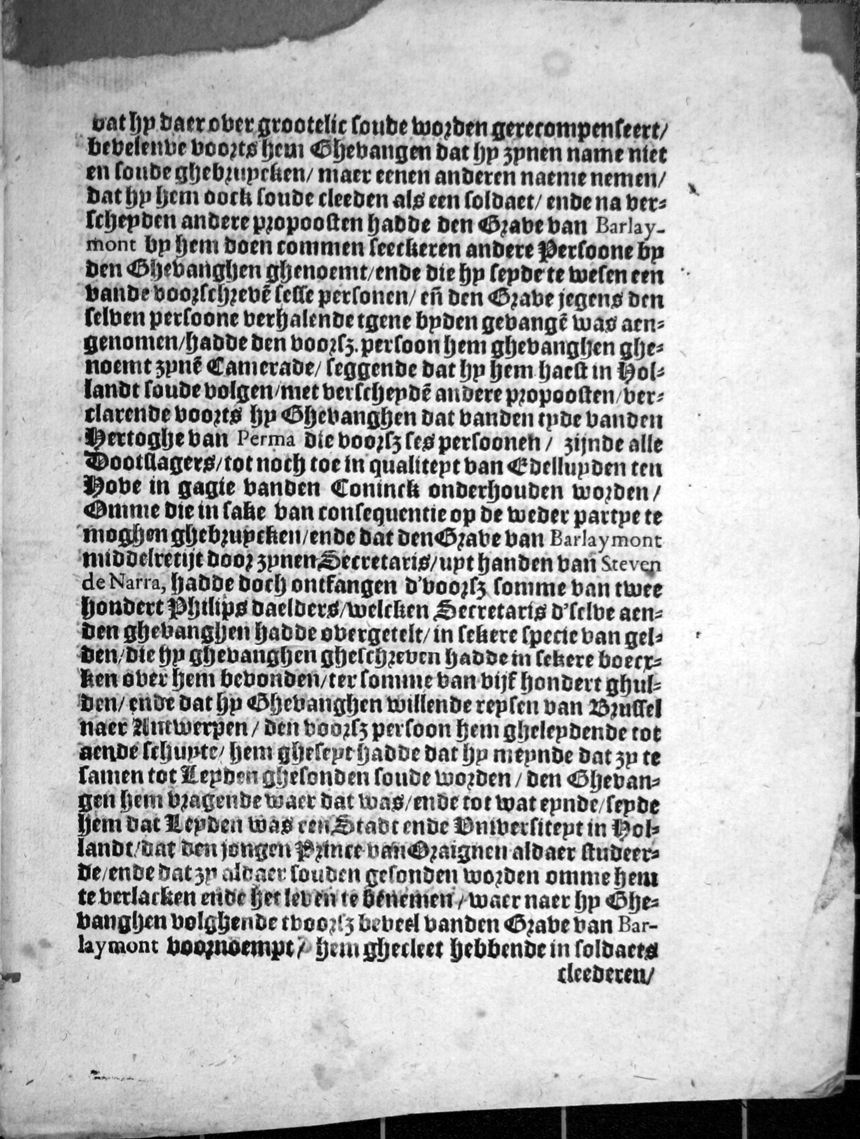 dat hy daer over grootelic soude worden gerecompenseert/
bevelende voorts hem Ghevangen dat hy zynen name niet
en soude ghebruycken/ maer eenen anderen naeme nemen/
dat hy hem oock soude cleeden als een soldaet/ ende na ver-
scheyden andere propoosten hadde den Grave van Barlay-
mont by hem doen commen seeckeren andere Persoone by
den Ghevanghen ghenoemt/ende die hy seyde te wesen een
vande voorschrevē sesse personen/ eñ den Grave jegens den
selven persoone verhalende tgene byden gevangē was aen-
genomen/hadde den voorsz. persoon hem ghevanghen ghe-
noemt zynē Camerade/ seggende dat hy hem haest in Hol-
landt soude volgen/met verscheydē andere propoosten/ver-
clarende voorts hy Ghevanghen dat vanden tyde vanden
Hertoghe van Perma die voorsz ses persoonen/ zijnde alle
Dootslagers/tot noch toe in qualiteyt van Edelluyden ten
Hove in gagie vanden Coninck onderhouden worden/
Omme die in sake van consequentie op de weder partye te
moghen ghebruycken/ende dat den Grave van Barlaymont
middelretijt door zynen Secretaris/uyt handen van Steven
de Narra, hadde doch ontfangen d'voorsz somme van twee
hondert Philips daelders/welcken Secretaris d'selve aen-
den ghevanghen hadde overgetelt/in sekere specie van gel-
den/die hy ghevanghen gheschreven hadde in sekere boecx-
ken over hem bevonden/ter somme van vijf hondert ghul-
den/ ende dat hy Ghevanghen willende reysen van Brussel
naer Antwerpen/ den voorsz persoon hem gheleydende tot
aende schuyte/ hem gheseyt hadde dat hy meynde dat zy te
samen tot Leyden ghesonden soude worden/ den Ghevan-
gen hem vragende waer dat was/ende tot wat eynde/seyde
hem dat Leyden was een Stadt ende Universiteyt in Hol-
landt/dat den jongen Prince van Oraignen aldaer studeer-
de/ende dat zy aldaer souden gesonden worden omme hem
te verlacken ende het leven te benemen/ waer naer hy Ghe-
vanghen volghende tvoorsz beveel vanden Grave van Bar-
laymont voornoempt/ hem ghecleet hebbende in soldaets
cleederen/